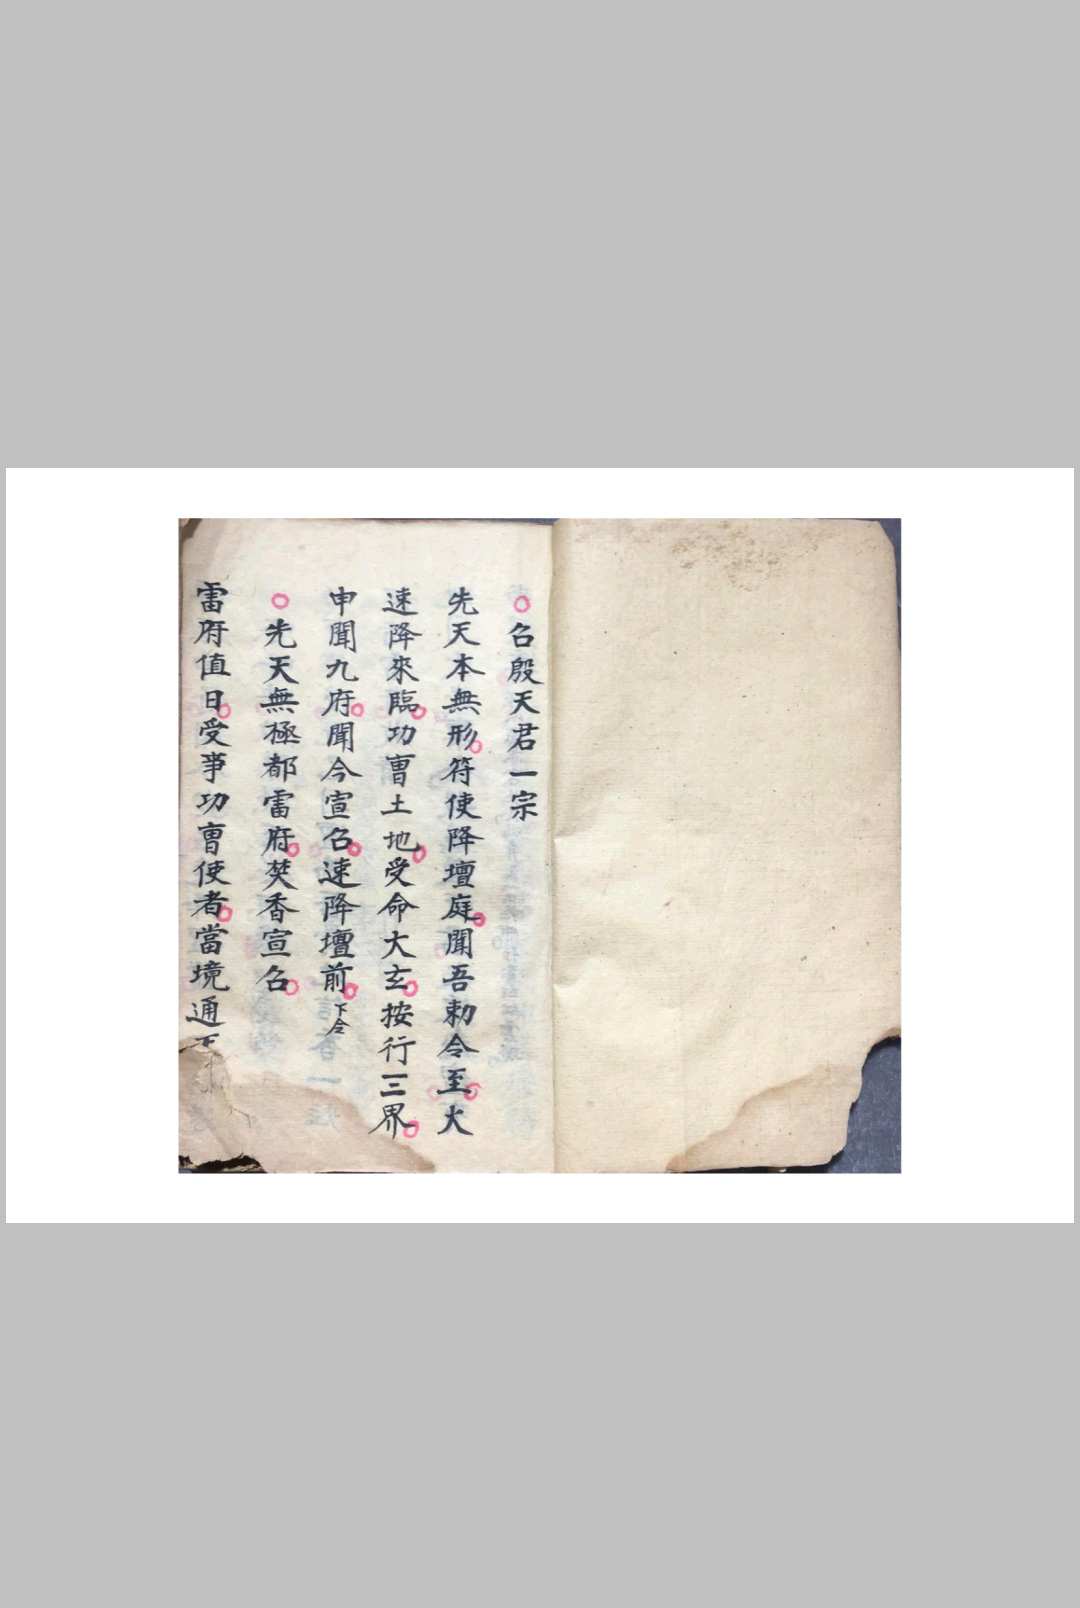 召殷天君一宗
先天本無形符使降壇庭聞吾勅令至火
速降來臨功曹土地受命大玄按行三界
申聞九府聞今宣召速降壇前下令
先天無極都雷府焚香宣召
雷府值日受事功曹使者當境通